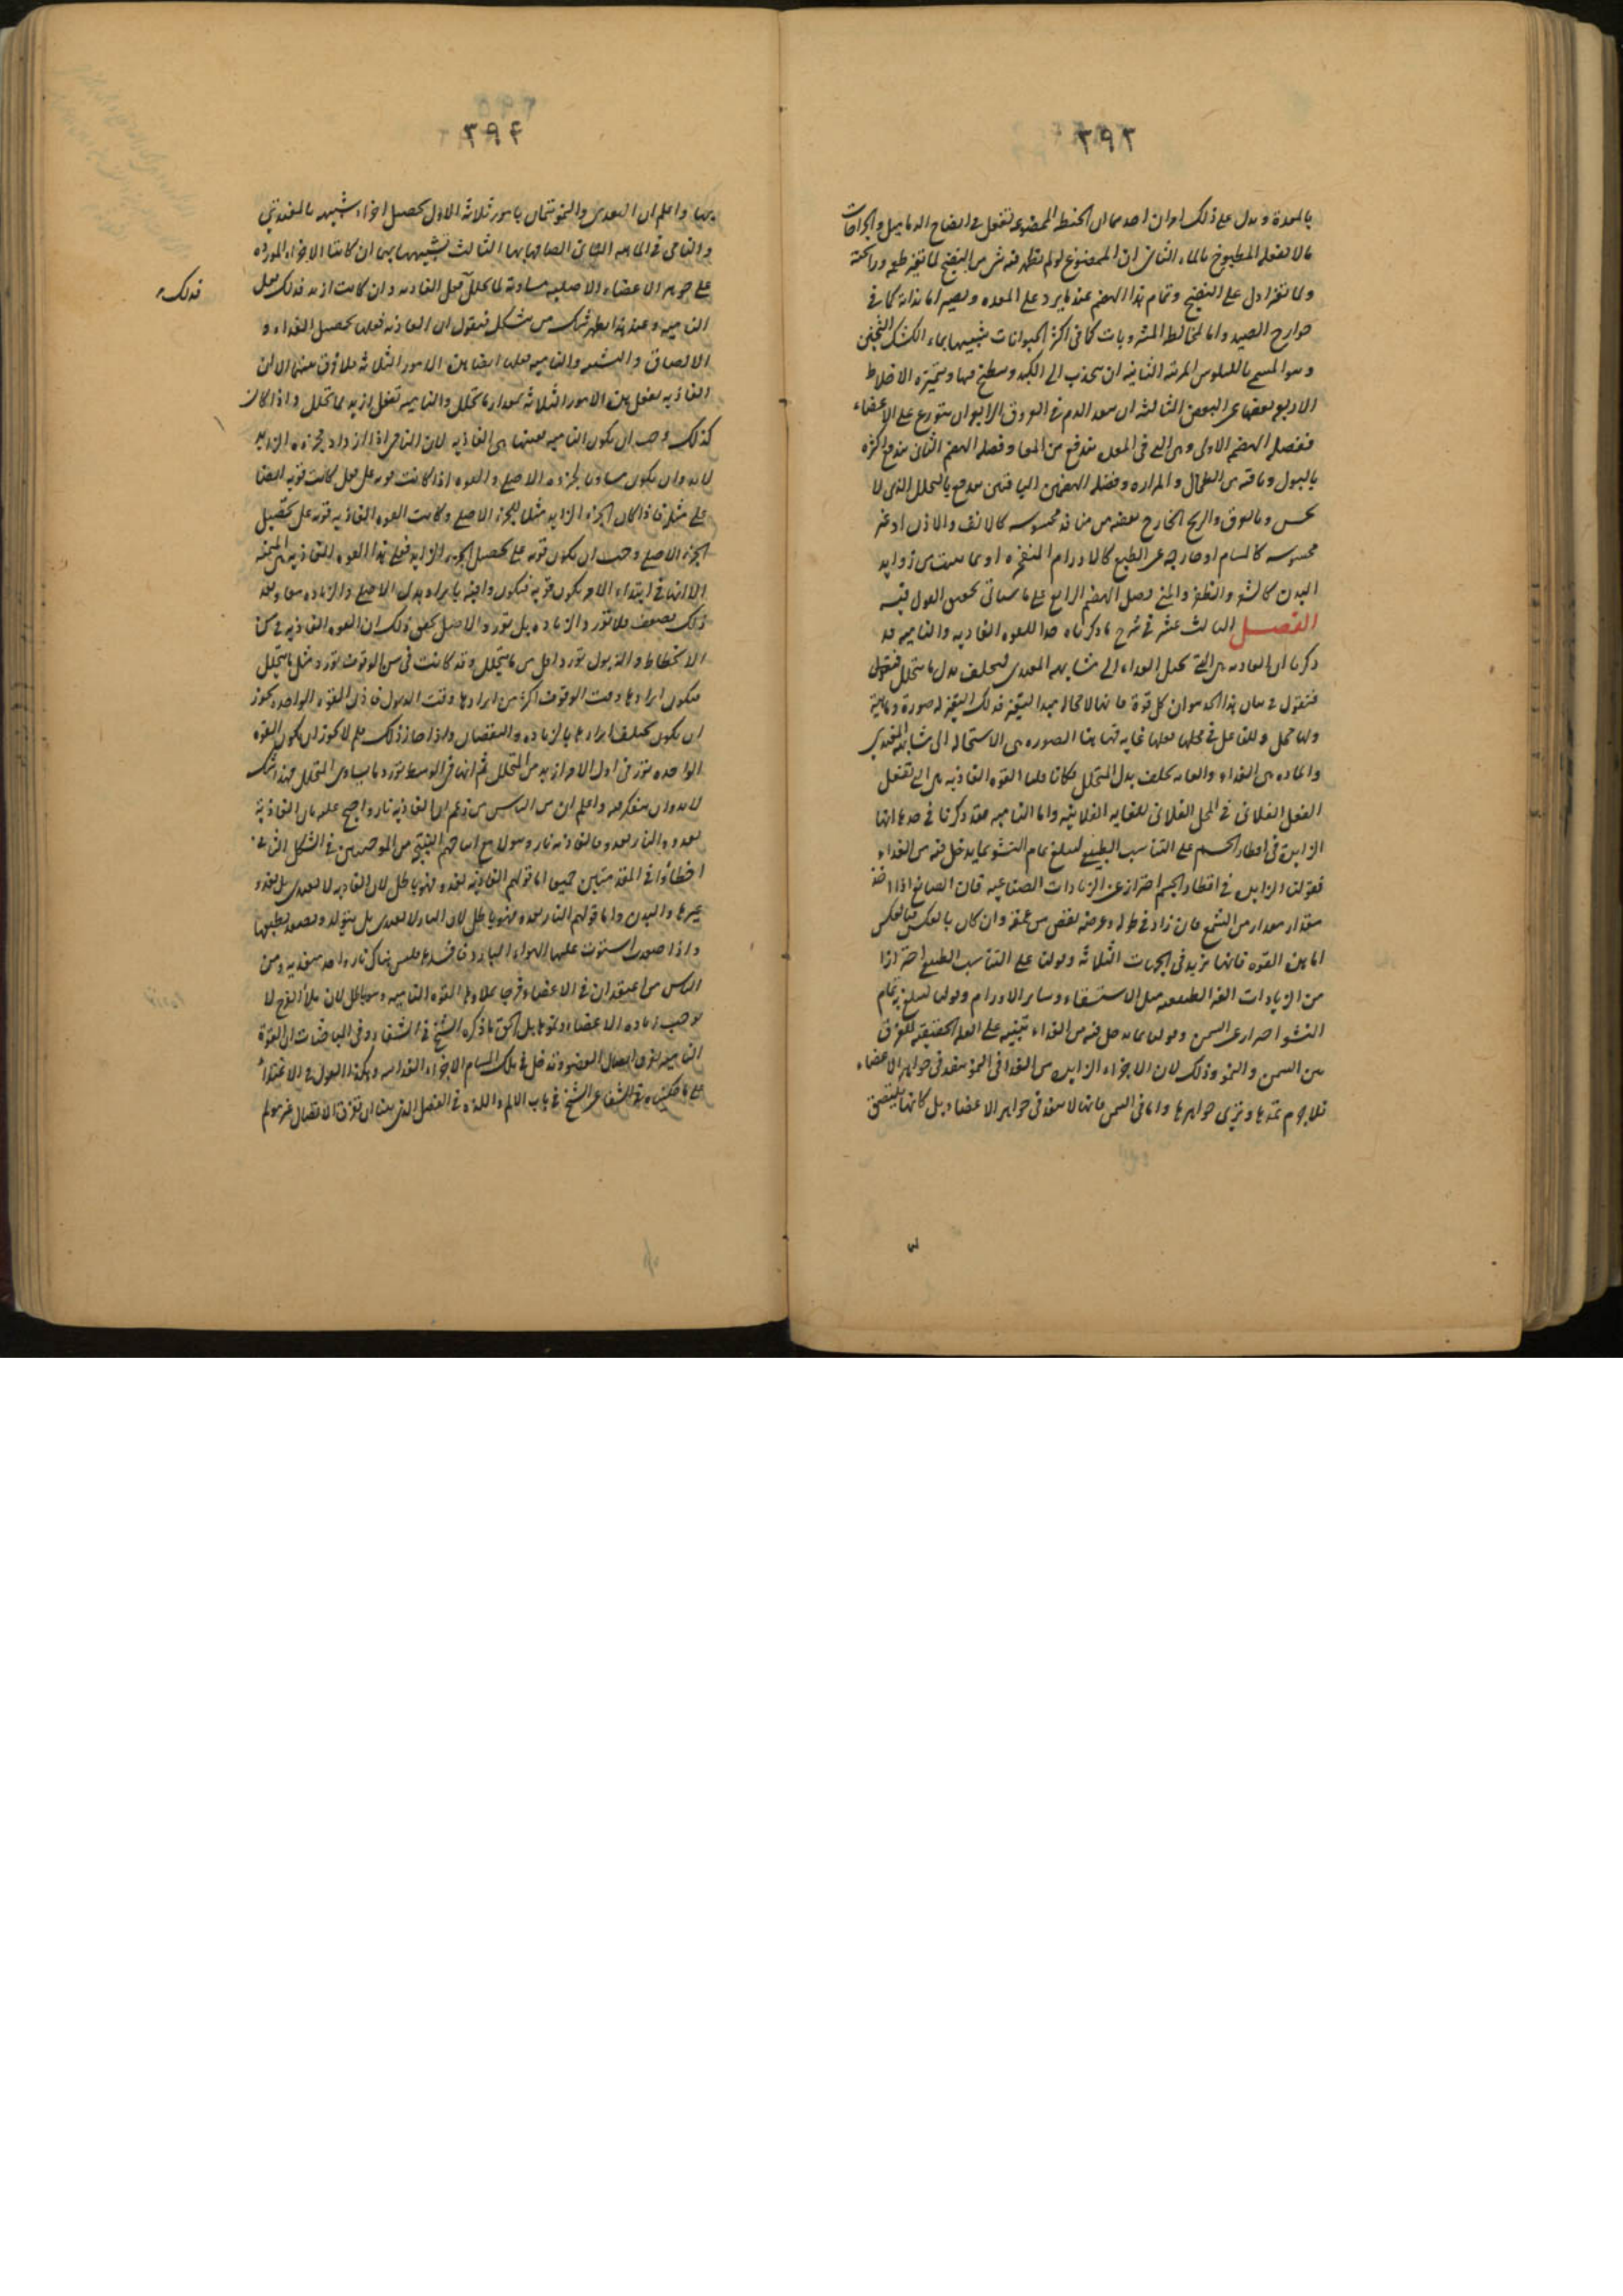 ٣٩٣
بالمعدة ويدل على ذلك امران احدهما ان الحنطة الممضوغة تفعل فى انضاج الدماميل والجراحات
ما لا يفعله المطبوخ بالماء الثانى ان الممضوغ لو لم يظهر فيه شىء من النضج لما تغير طعمه ورائحته
ولما تغير ادل على النضج وتمام هذا الهضم عند ما يرد على المعدة ويصير اما بذاته كما فى
جوارح الصيد واما لمخالطة المشروبات كما فى اكثر الحيوانات شبيها بماء الكشك الثخين
وهو المسمى بالكيلوس المرتبة الثانية ان ينجذب الى الكبد وينطبخ فيها ويتميز الاخلاط
الاربعة بعضها عن البعض الثالثة ان بعد الدم فى العروق الرابع ان يتوزع على الاعضاء
ففضلة الهضم الاول وهى التى فى المعدة تندفع من المعا وفضلة الهضم الثانى يندفع اكثره
بالبول وباقيه من الطحال والمرارة وفضلة الهضمين الباقيين يندفع بالتحلل الذى لا
يحس وبالعرق والريح الخارج بعضه من منافذ محسوسة كالانف والاذن او غير
محسوسة كالمسام او خارجة عن الطبع كالاورام المنفجرة او بما ينبت من زوايد
البدن كالشعر والظفر والمنى فضل الهضم الرابع على ما سياتى تحقيق القول فيه
الفصل الثالث عشر فى شرح ما ذكرناه حدا للقوة الغاذية والنامية قد
ذكرنا ان الغاذية هى التى تحيل الغذاء الى مشابهة المغتذى ليخلف بدل ما يتحلل فنقول
فنقول فى بيان هذا الحد هو ان كل قوة فانها لا محالة مبدا لتغير فذلك التغير له صورة وماهية
ولها محل وللفاعل فى فعلها غاية فهاهنا الصورة هى الاستحالة الى مشابهة المغتذى
والمادة هى الغذاء والغاية يخلف بدل المتحلل فكانا قلنا القوة الغاذية هى التى تفعل
الفعل الفلانى فى المحل الفلانى للغاية الفلانية واما النامية فقد ذكرنا فى حدها انها
الزايدة فى اقطار الجسم على التناسب الطبيعى ليبلغ تمام النشو بما يدخل فيه من الغذاء
فقولنا الزايدة فى اقطار الجسم احتراز عن الزيادات الصناعية فان الصانع اذا اخذ
مقدار من الشمع فان زاد فى طوله وعرضه نقص من عمقه وان كان بالعكس فبالعكس
اما هذه القوة فانها تزيد فى الجهات الثلاثة وقولنا على التناسب الطبيعى احترازا
من الزيادات الغير الطبيعية مثل الاستسقاء وساير الاورام وقولنا ليبلغ به تمام
النشو احترازا عن السمن وقولنا بما يدخل فيه من الغذاء تنبيه على العلة الحقيقية للفرق
بين السمن والنمو وذلك لان الاجزاء الزايدة من الغذا فى النمو ينفذ فى جواهر الاعضاء
فلا جرم تمدها وتزيد فى جواهرها واما فى السمن فانها لا ينفذ فى جواهر الاعضاء بل كانها يلتصق
٣٩۴
بها واعلم ان التغذى والنمو يتمان بامور ثلاثة الاول تحصيل اجزاء شبيه بالمغتذى
والنامى فى الماهية الثانى الصاقها بها الثالث تشبيهها بها ان كانت الاجزاء الموردة
على جوهر الاعضاء الاصلية مساوية لما يتحلل فعل الغاذية وان كانت ازيد فذلك فعل
النامية وعند هذا يظهر شك مشكل فنقول ان الغاذية فعلت تحصيل الغذاء و
الالصاق والتشبيه والنامية فعلت ايضا هذه الامور الثلاثة فلا فرق بينهما الا ان
الغاذية تفعل هذه الامور الثلاثة بمقدار ما يتحلل والنامية تفعل ازيد مما يتحلل واذا كان
كذلك وجب ان يكون النامية بعينها هى الغاذية لان النامى اذا ازداد فجزؤه الزايد
لا بد وان يكون مساويا لجزؤه الاصلى والقوة اذا كانت قوية على فعل كانت قوية ايضا
على مثله فاذا كان الجزء الزايد مثلا للجزء الاصلى وكانت القوة الغاذية قوية على تحصيل
الجزء الاصلى وجب ان يكون قوية على تحصيل الجزء الزايد فعلى هذا القوة الغاذية هى المنمية
الا انها فى ابتداء الامر يكون قوية فيكون وافية بايراد بدل الاصلى والزيادة معا وبعد
ذلك تضعف فلا تورد الزيادة بل تورد الاصل يحقق ذلك ان القوة الغاذية فى سن
الانحطاط والذبول تورد اقل من ما يتحلل وقد كانت فى سن الوقوف تورد مثل ما يتحلل
فيكون ايرادها وقت الوقوف اكثر من ايرادها وقت الذبول فاذن القوة الواحدة يجوز
ان يكون تختلف ايرادها بالزيادة والنقصان واذا جاز ذلك فلم لا يجوز ان يكون القوة
الواحدة تورد فى اول الامر ازيد من المتحلل ثم انها فى الوسط تورد ما يساوى المتحلل فهذا شك
لا بد وان يتفكر فيه واعلم ان من الناس من زعم ان الغاذية نار واحتج عليه بان الغاذية
تغذو والنار تغذو فالغاذية نار وهولاء مع انتاجهم النتيجة من الموجبتين فى الشكل الثانى
اخطاوا فى المقدمتين جميعا اما قولهم الغاذية تغذو فهو باطل لان الغاذية لا تغتذى بل تغذو
غيرها والبدن واما قولهم النار تغذو فهو باطل لان النار لا تغتذى بل يتولد ويصعد بطبعها
واذا صعدت استولت عليها الهواء البارد فافسدها فليس هناك نار واحد يغتذى ومن
الناس من اعتقد ان فى الاعضاء فرجا تملاها القوة النامية وهو باطل لان ملأ الفرج لا
يوجب زيادة الاعضاء ونموها بل الحق ما ذكره الشيخ فى الشفاء وفى المباحثات ان القوة
النامية تفرق اتصال العضو وتدخل فى تلك المسام الاجزاء الغذائية وهكذا القول فى الاغتذاء
على ما حكيناه فى الشفا عن الشيخ فى باب الالم واللذة فى الفصل الذى بينا ان تفرق الاتصال غير مولم
فذلك